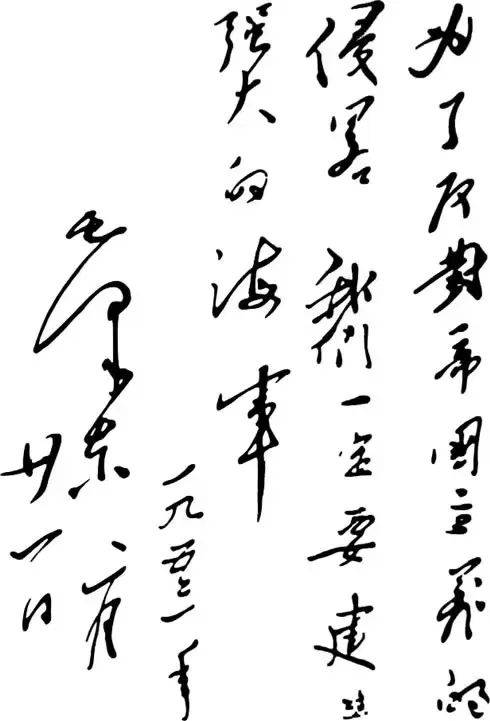 为了反對帝國主義的
侵畧 我們一定要建設
强大的海軍
毛泽东
一九五三年
二月
廿一日